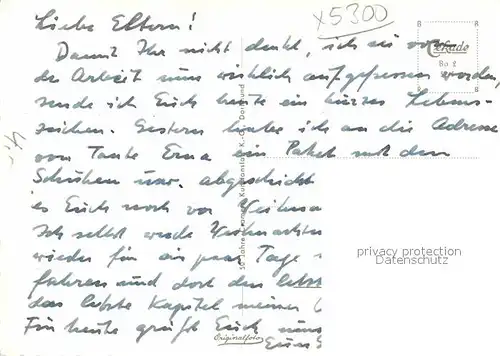 x5300
Liebe Eltern!
Damit Ihr nicht denkt, ich sei von
der Arbeit nun wirklich aufgefressen worden,
sende ich Euch heute ein kurzes Lebens-
zeichen. Gestern habe ich an die Adresse
von Tante Erna ein Paket mit den
Schuhen usw. abgeschickt
es Euch noch vor Weihna
Ich selbst werde Weihnachten
wieder für ein paar Tage
fahren und dort den letzt
das letzte Kapitel meiner
Für heute grüßt Euch
Euer
Cekade
Bo 2
Originalfoto
privacy protection
Datenschutz